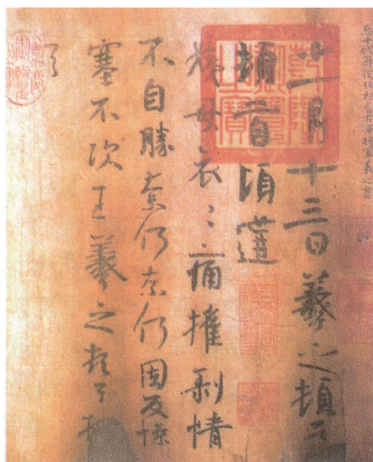 一月十三日羲之頓首
頓首頃遘
姨母哀〻痛摧剥情
不自勝奈何奈何因反慘
塞不次王羲之頓首頓
首